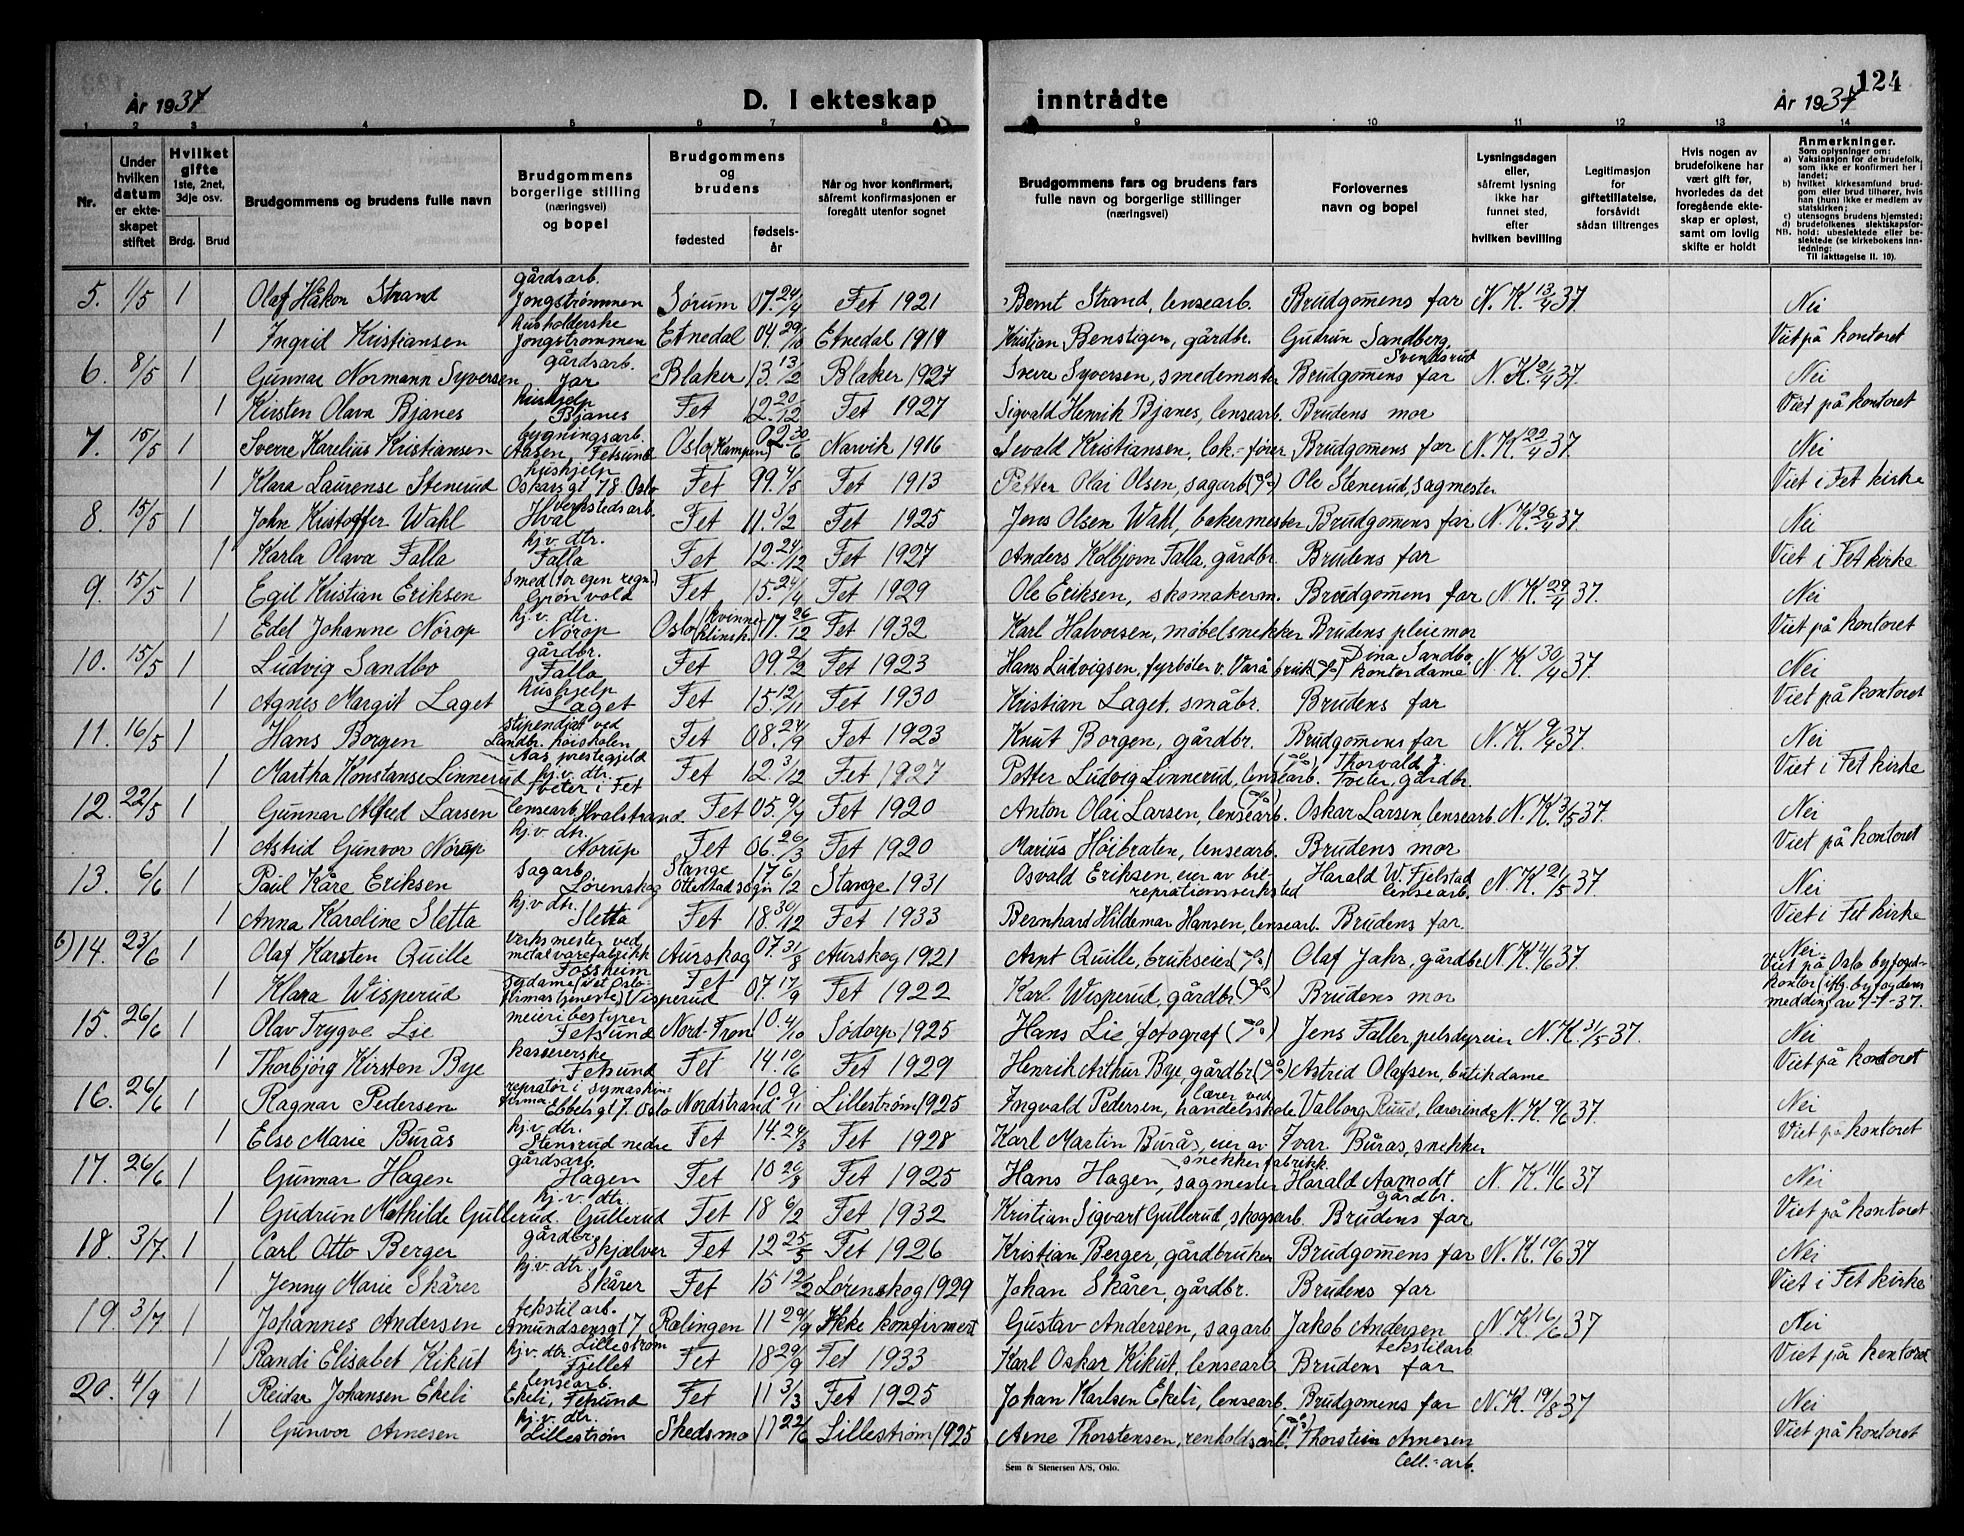 År 1937
D. I ekteskap
inntrådte
År 1937
124
1 2 3 4 5 6 7 8 9 10 11 12 13 14
Nr.
Under hvilken datum er ekteskapet stiftet
Hvilket gifte 1ste, 2net, 3dje osv.
Brdg. Brud
Brudgommens og brudens fulle navn
Brudgommens borgerlige stilling (næringsvei) og bopel
Brudgommens og brudens
fødested fødselsår
Når og hvor konfirmert, såfremt konfirmasjonen er foregått utenfor sognet
Brudgommens fars og brudens fars fulle navn og borgerlige stillinger (næringsvei)
Forlovernes navn og bopel
Lysningsdagen eller, såfremt lysning ikke har funnet sted, efter hvilken bevilling
Legitimasjon for giftetillatelse, forsåvidt sådan tiltrenges
Hvis nogen av brudefolkene har vært gift før, hvorledes da det foregående ekteskap er opløst, samt om lovlig skifte er holdt
Anmerkninger.
Som oplysninger om:
a) Vaksinasjon for de brudefolk, som ikke er konfirmert her i landet;
b) hvilket kirkesamfund brudgom eller brud tilhører, hvis han (hun) ikke er medlem av statskirken;
c) utensogns brudens hjemsted;
d) brudefolkenes slektskapsforhold: ubeslektede eller beslektede (se kirkebokens innledning:
NB. Til iakttagelse II. 10).
5. 1/5 1 Olaf Håkon Strand gårdsarb. Jongstrømmen Sørum 07. 24/4 Fet 1921 Bernt Strand, lensearb. Brudgomens far N.K. 13/4 37. Nei
1 Ingrid Kristiansen husholderske Jongstrømmen Etnedal 04. 29/10 Etnedal 1919 Kristian Benstigen, gårdbr. Gudrun Sandberg, Svendsrud Viet på kontoret
6. 8/5 1 Gunnar Normann Syversen gårdsarb. Jar Blaker 13. 13/2 Blaker 1927 Sverre Syversen, smedemester Brudgomens far N.K. 21/4 37. Nei
1 Kirsten Olava Bjanes hushjelp Bjanes Fet 12. 20/12 Fet 1927 Sigvald Henrik Bjanes, lensearb. Brudens mor Viet på kontoret
7. 15/5 1 Sverre Karelius Kristiansen bygningsarb. Aasen, Fetsund Oslo (Kampen) 02 30/6 Narvik 1916 Sevald Kristiansen, lok.-fører Brudgomens far N.K. 22/4 37. Nei
1 Klara Laurense Stenerud hushjelp Oskarsgt 78 Oslo Fet 99. 4/5 Fet 1913 Petter Olai Olsen, sagarb Ole Stenerud, sagmester Viet i Fet kirke
8. 15/5 1 John Kristoffer Wahl verkstedsarb. Hval Fet 11. 3/2 Fet 1925 Jens Olsen Wahl, bakermester Brudgomens far N.K. 26/4 37. Nei
1 Karla Olava Falla hj.v. dtr. Falla Fet 12. 24/12 Fet 1927 Anders Kolbjorn Falla, gårdbr. Brudens far Viet i Fet kirke
9. 15/5 1 Egil Kristian Eriksen Smed (for egen regn.) Grønvold Fet 15. 24/4 Fet 1929 Ole Eriksen, skomakerm. Brudgomens far N.K. 29/4 37. Nei
1 Edel Johanne Nørop hj.v. dtr. Nørop Oslo (Kvinneklinik) 17. 26/12 Fet 1932 Karl Halvorsen, møbelsnekker Brudens pleiemor Viet på kontoret
10. 15/5 1 Ludvig Sandbo gårdbr. Falla Fet 09. 2/2 Fet 1923 Hans Ludvigsen, fyrbøter v. Varå bruk Dina Sandbo kontordame N.K. 30/4 37. Nei
1 Agnes Margit Laget hushjelp Laget Fet 15. 12/11 Fet 1930 Kristian Laget, småbr. Brudens far Viet på kontoret
11. 16/5 1 Hans Borgen stipendiat ved Landbr. høiskolen Aas prestegjeld Fet 08. 24/9 Fet 1923 Knut Borgen, gårdbr. Brudgomens far N.K. 9/4 37. Nei
1 Martha Konstanse Linnerud hj.v. dtr. Tveter i Fet Fet 12. 3/12 Fet 1927 Petter Ludvig Linnerud, lensearb. Thorvald J. Tveter, gårdbr. Viet i Fet kirke
12. 22/5 1 Gunnar Alfred Larsen lensearb. Hvalstrand Fet 05. 9/7 Fet 1920 Anton Olai Larsen, lensearb. Oskar Larsen, lensearb. N.K. 3/5 37. Nei
1 Astrid Gunvor Nørup hj.v. dtr. Nørup Fet 06. 26/3 Fet 1920 Marius Høibraten, lensearb. Brudens mor Viet på kontoret
13. 6/6 1 Paul Kåre Eriksen sagarb. Lørenskog Stange Ottestad sogn 17 6/12 Stange 1931 Osvald Eriksen, eier av bilreprationsverksted Harald W. Fjelstad lensearb. N.K. 21/5 37 Nei
1 Anna Karoline Sletta hj.v. dtr. Sletta Fet 18. 30/12 Fet 1933 Bernhard Hildemar Hansen, lensearb. Brudens far. Viet i Fet kirke
6) 14. 23/6 1 Olaf Karsten Quille Verksmester ved metalvarefabrikk Fossheim Aurskog 07. 31/8 Aurskog 1921 Arnt Quille, brukseier Olaf Jahr, gårdbr N.K. 4/6 37. Nei
1 Klara Wisperud sydame (i et Oslofirmas tjeneste) Visperud Fet 07. 17/9 Fet 1922 Karl Wisperud, gårdbr. Brudens mor Viet på Oslo byfogedkontor (iflg. byfogdens medding av 7-7-37.
15. 26/6 1 Olav Trygve Lie meieribestyrer Fetsund Nord-Fron 10. 4/10 Sødorp 1925 Hans Lie, fotograf Jens Faller, pelsdyreier N.K. 31/5 37. Nei
1 Thorbjørg Kirsten Bye kassererske Fetsund Fet 14. 10/6 Fet 1929 Henrik Arthur Bye, gårdbr. Astrid Olafsen, butikdame Viet på kontoret
16. 26/6 1 Ragnar Pedersen repratør i symaskinfirma Ebbelsgt 7. Oslo Nordstrand 10. 9/11 Lillestrøm 1925 Ingvald Pedersen, lærer ved handelsskole Valborg Ruud, lærerinde N.K. 9/6 37. Nei
1 Else Marie Burås hj.v. dtr. Stensrud nedre Fet 14. 24/3 Fet 1928 Karl Martin Burås, eier av snekkerfabrikk. Ivar Burås, snekker Viet på kontoret
17. 26/6 1 Gunnar Hagen gårdsarb. Hagen Fet 10 20/3 Fet 1925 Hans Hagen, sagmester Harald Aamodt gårdbr. N.K. 11/6 37 Nei
1 Gudrun Mathilde Gullerud hj.v. dtr. Gullerud Fet 18 6/2 Fet 1932 Kristian Sigvart Gullerud, skogsarb. Brudens far Viet på kontoret
18. 3/7 1 Carl Otto Berger gårdbr. Skjælver Fet 12 25/5 Fet 1926 Kristian Berger, gårdbruker Brudgomens far N.K. 10/6 37 Nei
1 Jenny Marie Skårer hj.v. dtr. Skårer Fet 15 12/2 Lørenskog 1929 Johan Skårer, gårdbr. Brudens far Viet i Fet kirke
19. 3/7 1 Johannes Andersen tekstilarb. Amundsensgt 7 Lillestrøm Rælingen 11 29/9 Ikke konfirmert Gustav Andersen, sagarb Jakob Andersen tekstilarb N.K. 16/6 37 Nei
1 Randi Elisabet Kikut hj.v. dtr. Fjellet Fet 18 29/9 Fet 1933 Karl Oskar Kikut, lensearb Brudens far Viet på kontoret
20. 4/9 1 Reidar Johansen Ekeli lensearb. Ekeli, Fetsund Fet 11 3/3 Fet 1925 Johan Karlsen Ekeli, lensearb. Brudgomens far N.K. 19/8 37 Nei
1 Gunvor Arnesen hj.v. dtr. Lillestrøm Skedsmo 11 22/6 Lillestrøm 1925 Arne Thorstensen, renholdsarb. Thorstein Arnesen Cell.-arb. Viet på kontoret
Sem & Stenersen A/S, Oslo.